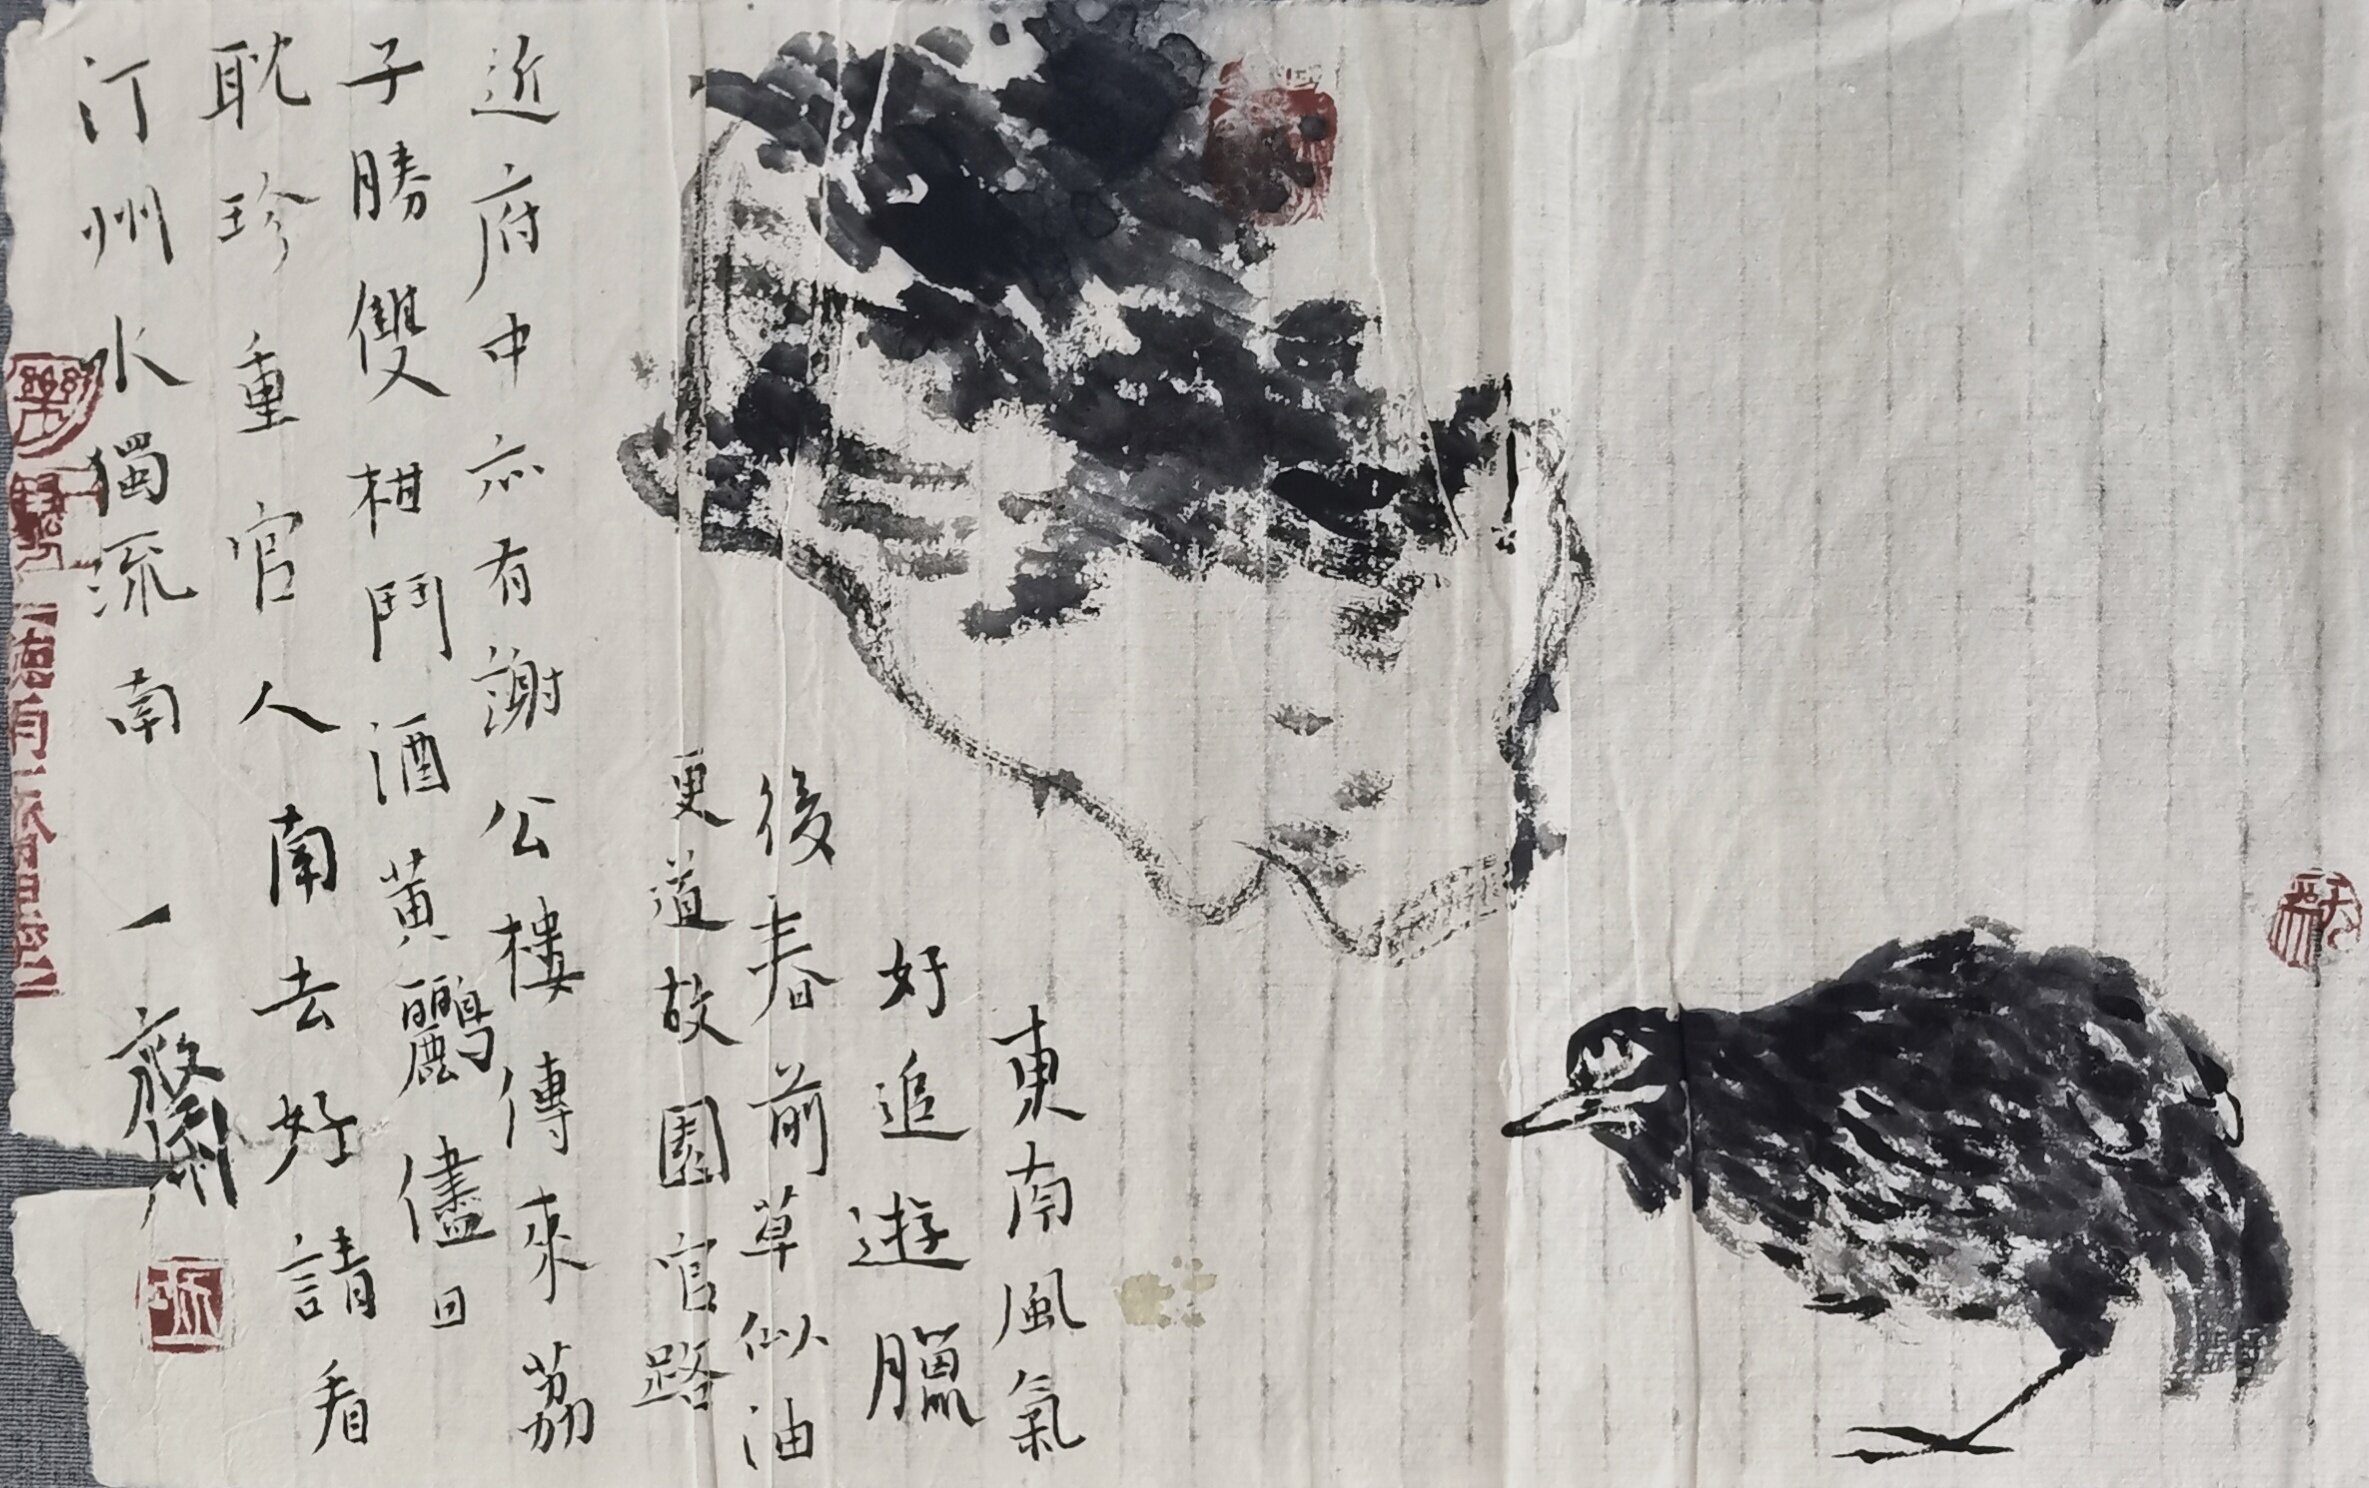 東南風氣
好追遊臘
後春前草似油
更道故園官路
近府中亦有謝公樓傳來荔
子勝雙柑鬥酒黃鸝儘回
耽珍重官人南去好請看
汀州水獨流南
一